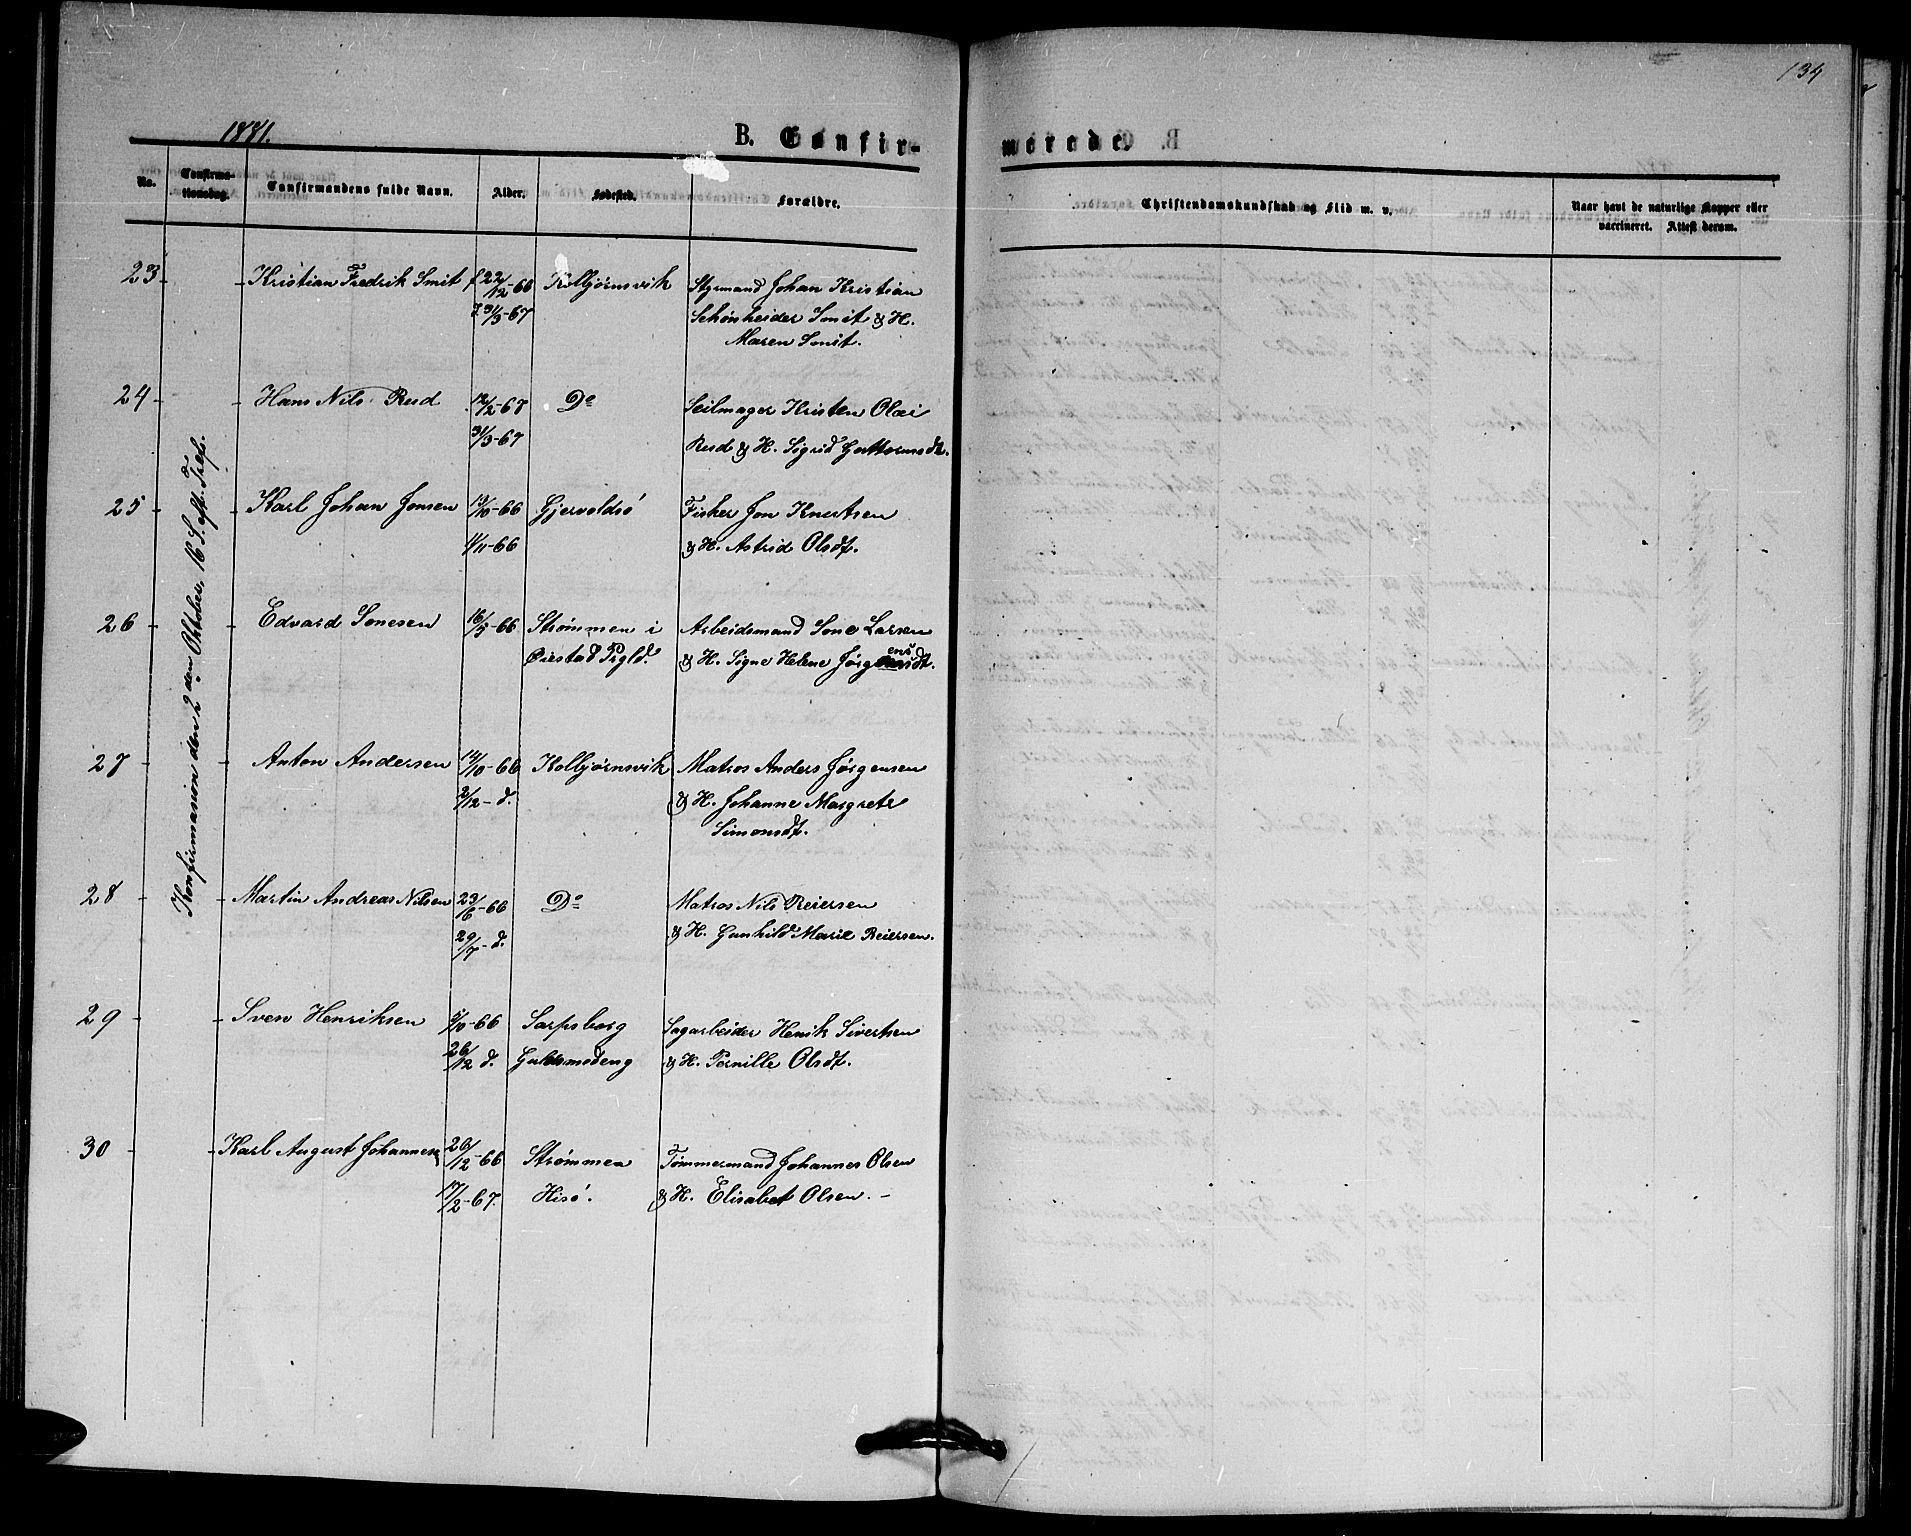 134
1881.
B. Confir-
merede.
No.
Confirma-
tionsdag.
Confirmandens fulde Navn.
Alder.
Fødested.
Forældre.
Christendomskundskab og Flid m. v.
Naar havt de naturlige Kopper eller
vaccineret. Attest derom.
Konfirmasion den 2den Oktober, 16 S. eft. Trefs.
23 - - Kristian Fredrik Smit f 22/12-66 Kolbjørnsvik Styrmand Johan Kristian
31/3-67 Schønheider Smit & H.
Maren Smit.
24 - - Hans Nils Rud 12/2-67 Do Seilmager Kristen Olai
31/3-67 Rud & H. Sigrid Guttormsdt.
25 - - Karl Johan Jonsen 13/10-66 Gjervoldsø Fisker Jon Knutsen
11/11-66 & H. Astrid Olsdt.
26 - - Edvard Sonesen 16/5-66 Strømmen i Arbeidsmand Sone Larsen
Øiestad Prgld. & H. Signe Helene Jørgensdt.
27 - - Anton Andersen 14/10-66 Kolbjørnsvik Matros Anders Jørgensen
2/12-d. & H. Johanne Margrete
Simonsdt.
28 - - Martin Andreas Nilsen 23/6-66 Do Matros Nils Reiersen
29/7-d. & H. Gunhild Marie Reiersen.
29 - - Sven Henriksen /10-66 Sarpsborg Sagarbeider Henik Sivertsen
26/12 d. & H. Pernille Olsdt.
30 - - Karl August Johannesen 26/12-66 Strømmen Tømmermand Johannes Olsen
17/2-67. Hisø. & H. Elisabet Olsen. -